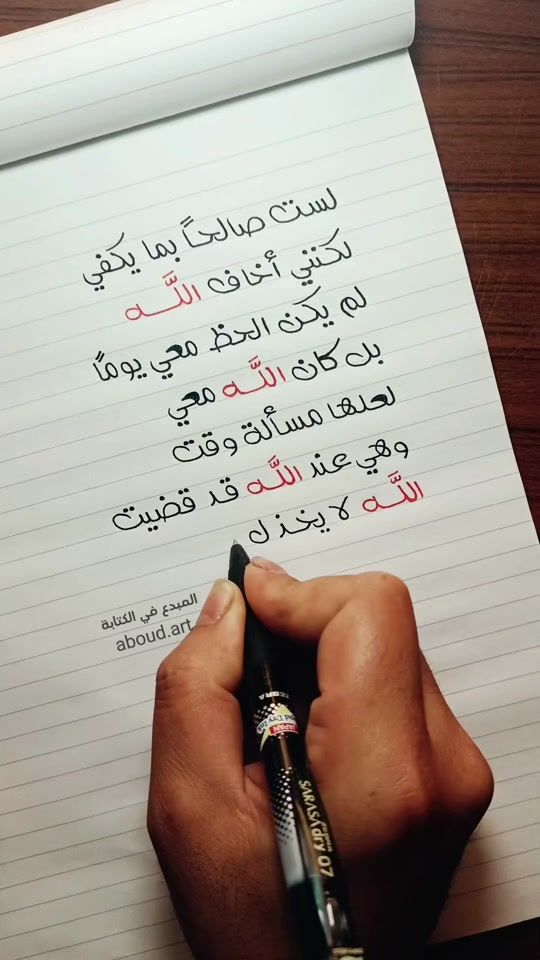 لست صالحاً بما يكفي
لكنني أخاف اللَّه
لم يكن الحظ معي يوماً
بل كان اللَّه معي
لعلها مسألة وقت
وهي عند اللَّه قد قضيت
اللَّه لا يخذل
المبدع في الكتابة
aboud.art
ZEBRA
JAPAN
Rapid Dry Ink
SARASA dry 0.7